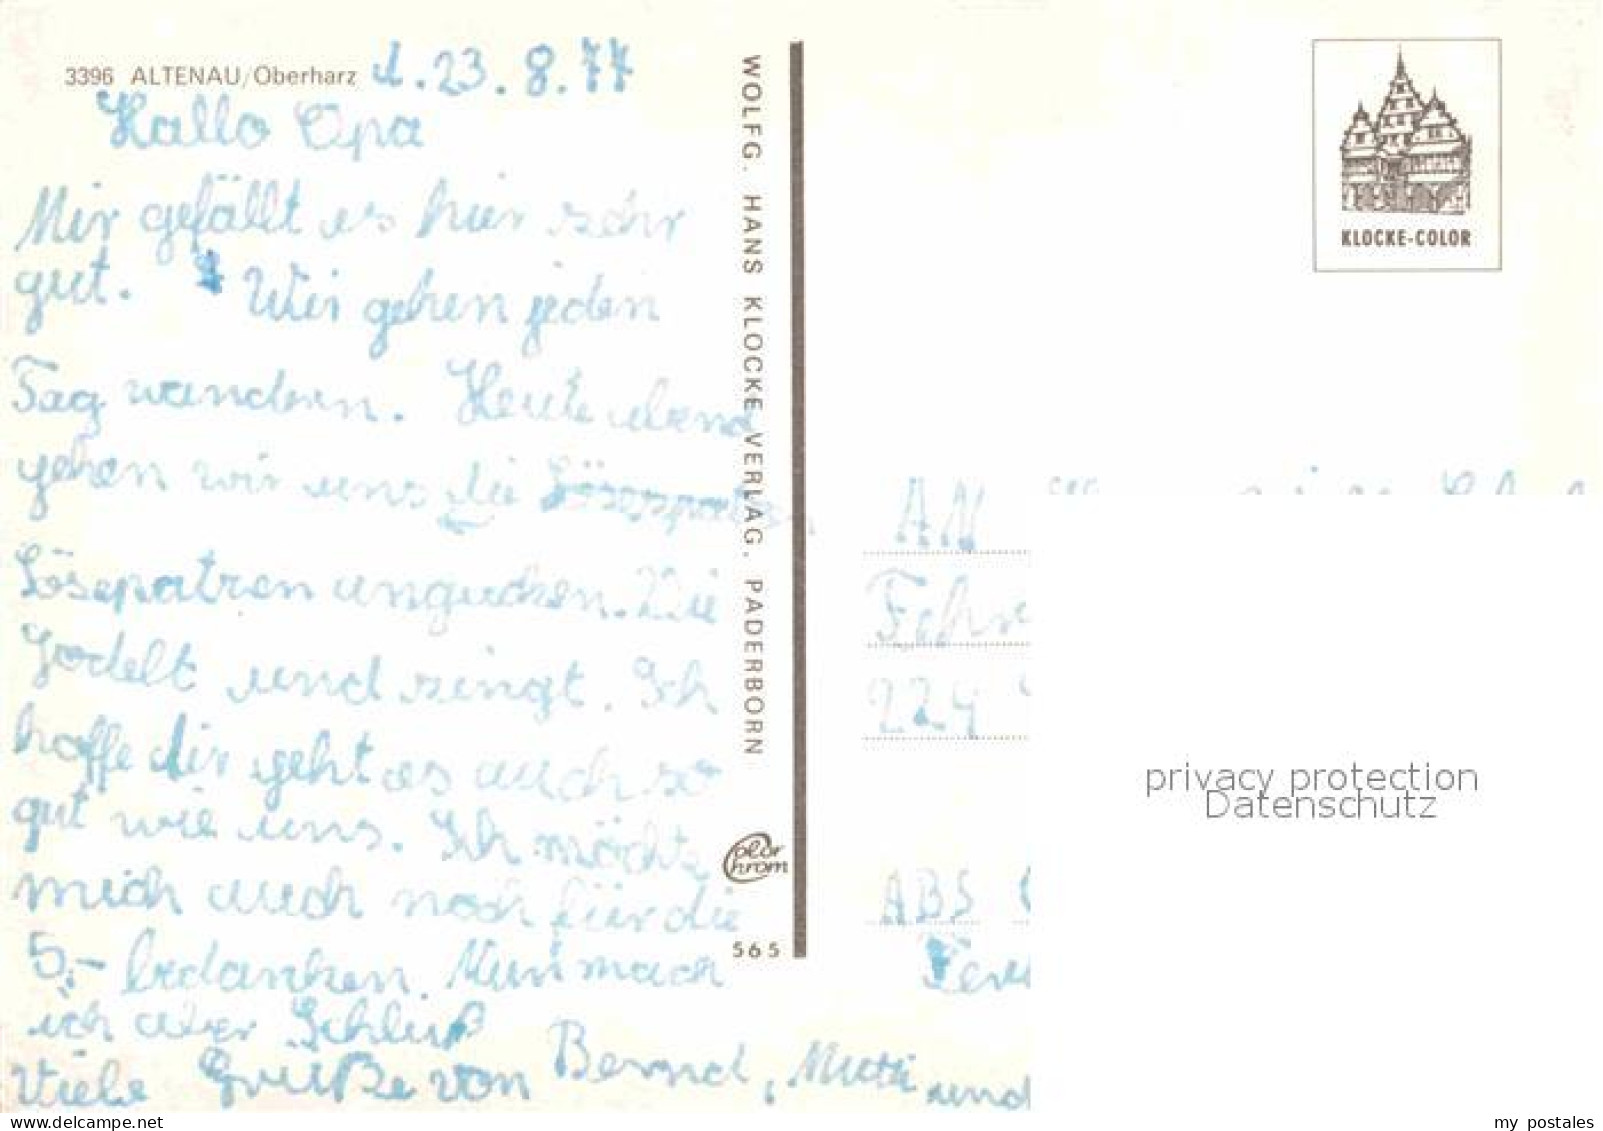 3396 ALTENAU/Oberharz d. 23.8.77
Hallo Opa
Mir gefällt es hier sehr
gut. Wir gehen jeden
Tag wandern. Heute abend
gehen wir uns die
Lösepatren angucken. Die
Jodelt und singt. Ich
hoffe dir geht es auch so
gut wie uns. Ich möchte
mich auch noch für die
5,- bedanken. Nun mach
ich aber Schluß
Viele Grüße von Bernd, Mutti und
WOLFG. HANS KLOCKE VERLAG, PADERBORN
Color Chrom
565
KLOCKE-COLOR
AN
Fehr
224
ABS
privacy protection
Datenschutz
my postales